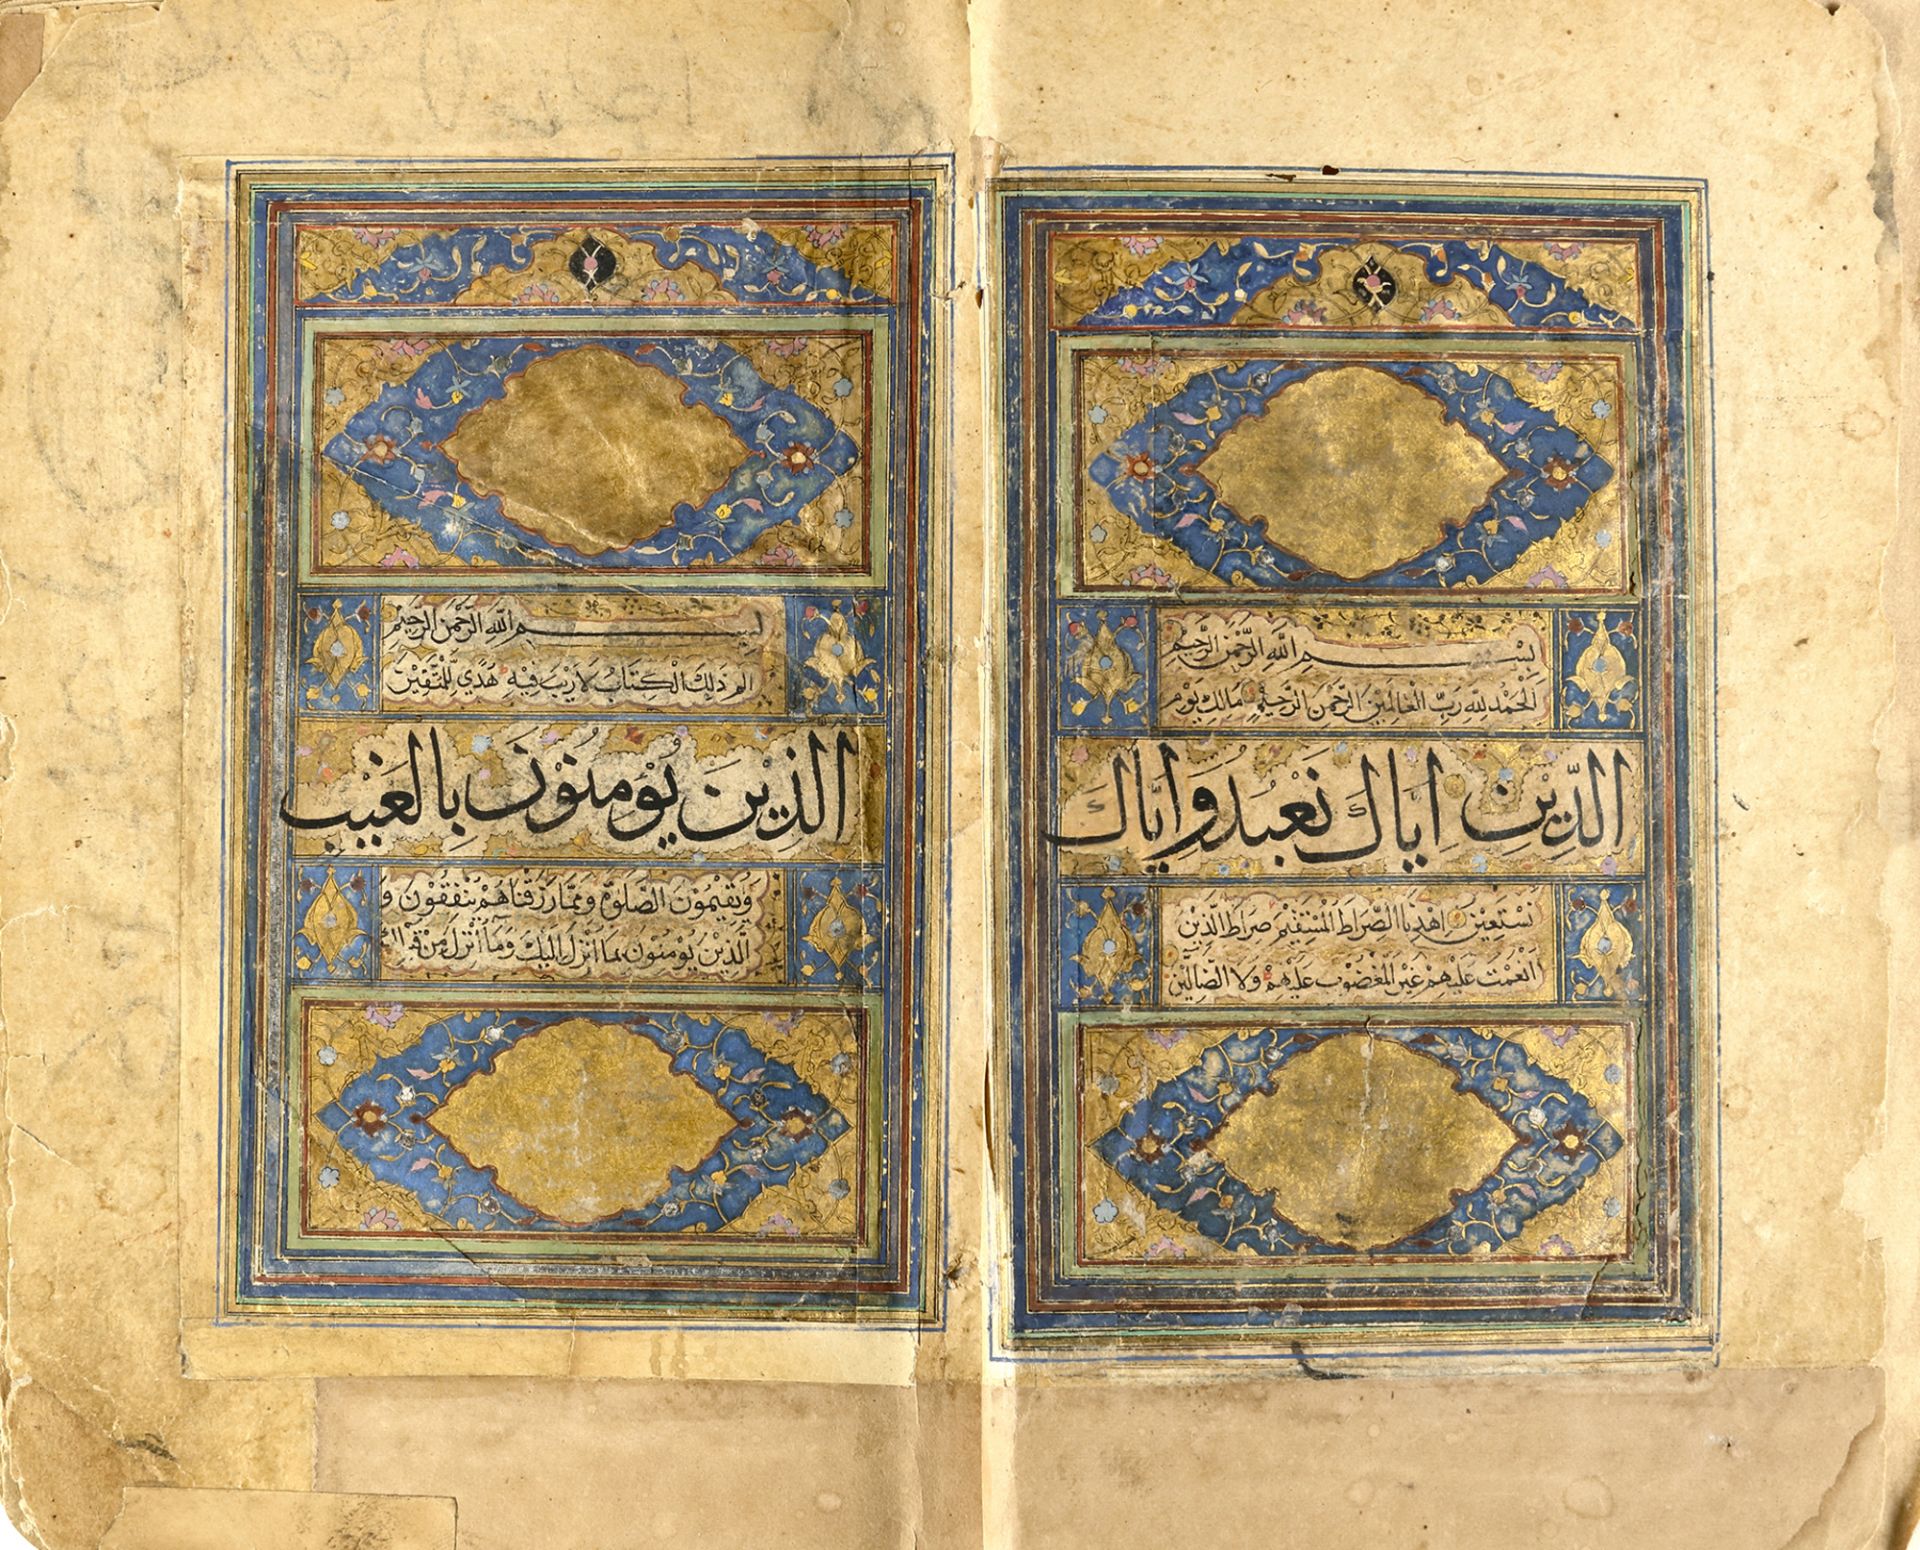 بِسْمِ اللهِ الرَّحْمٰنِ الرَّحِيْمِ
اَلْحَمْدُ لِلّٰهِ رَبِّ الْعَالَمِيْنَ الرَّحْمٰنِ الرَّحِيْمِ مَالِكِ يَوْمِ
الدِّيْنِ اِيَّاكَ نَعْبُدُ وَاِيَّاكَ
نَسْتَعِيْنُ اِهْدِنَا الصِّرَاطَ الْمُسْتَقِيْمَ صِرَاطَ الَّذِيْنَ
اَنْعَمْتَ عَلَيْهِمْ غَيْرِ الْمَغْضُوْبِ عَلَيْهِمْ وَلَا الضَّالِّيْنَ
بِسْمِ اللهِ الرَّحْمٰنِ الرَّحِيْمِ
الم ذٰلِكَ الْكِتَابُ لَا رَيْبَ فِيْهِ هُدًي لِّلْمُتَّقِيْنَ
الَّذِيْنَ يُوْمِنُوْنَ بِالْغَيْبِ
وَيُقِيْمُوْنَ الصَّلٰوةَ وَمِمَّا رَزَقْنَاهُمْ يُنْفِقُوْنَ وَ
الَّذِيْنَ يُوْمِنُوْنَ بِمَا اُنْزِلَ اِلَيْكَ وَمَا اُنْزِلَ مِنْ قَبْلِكَ